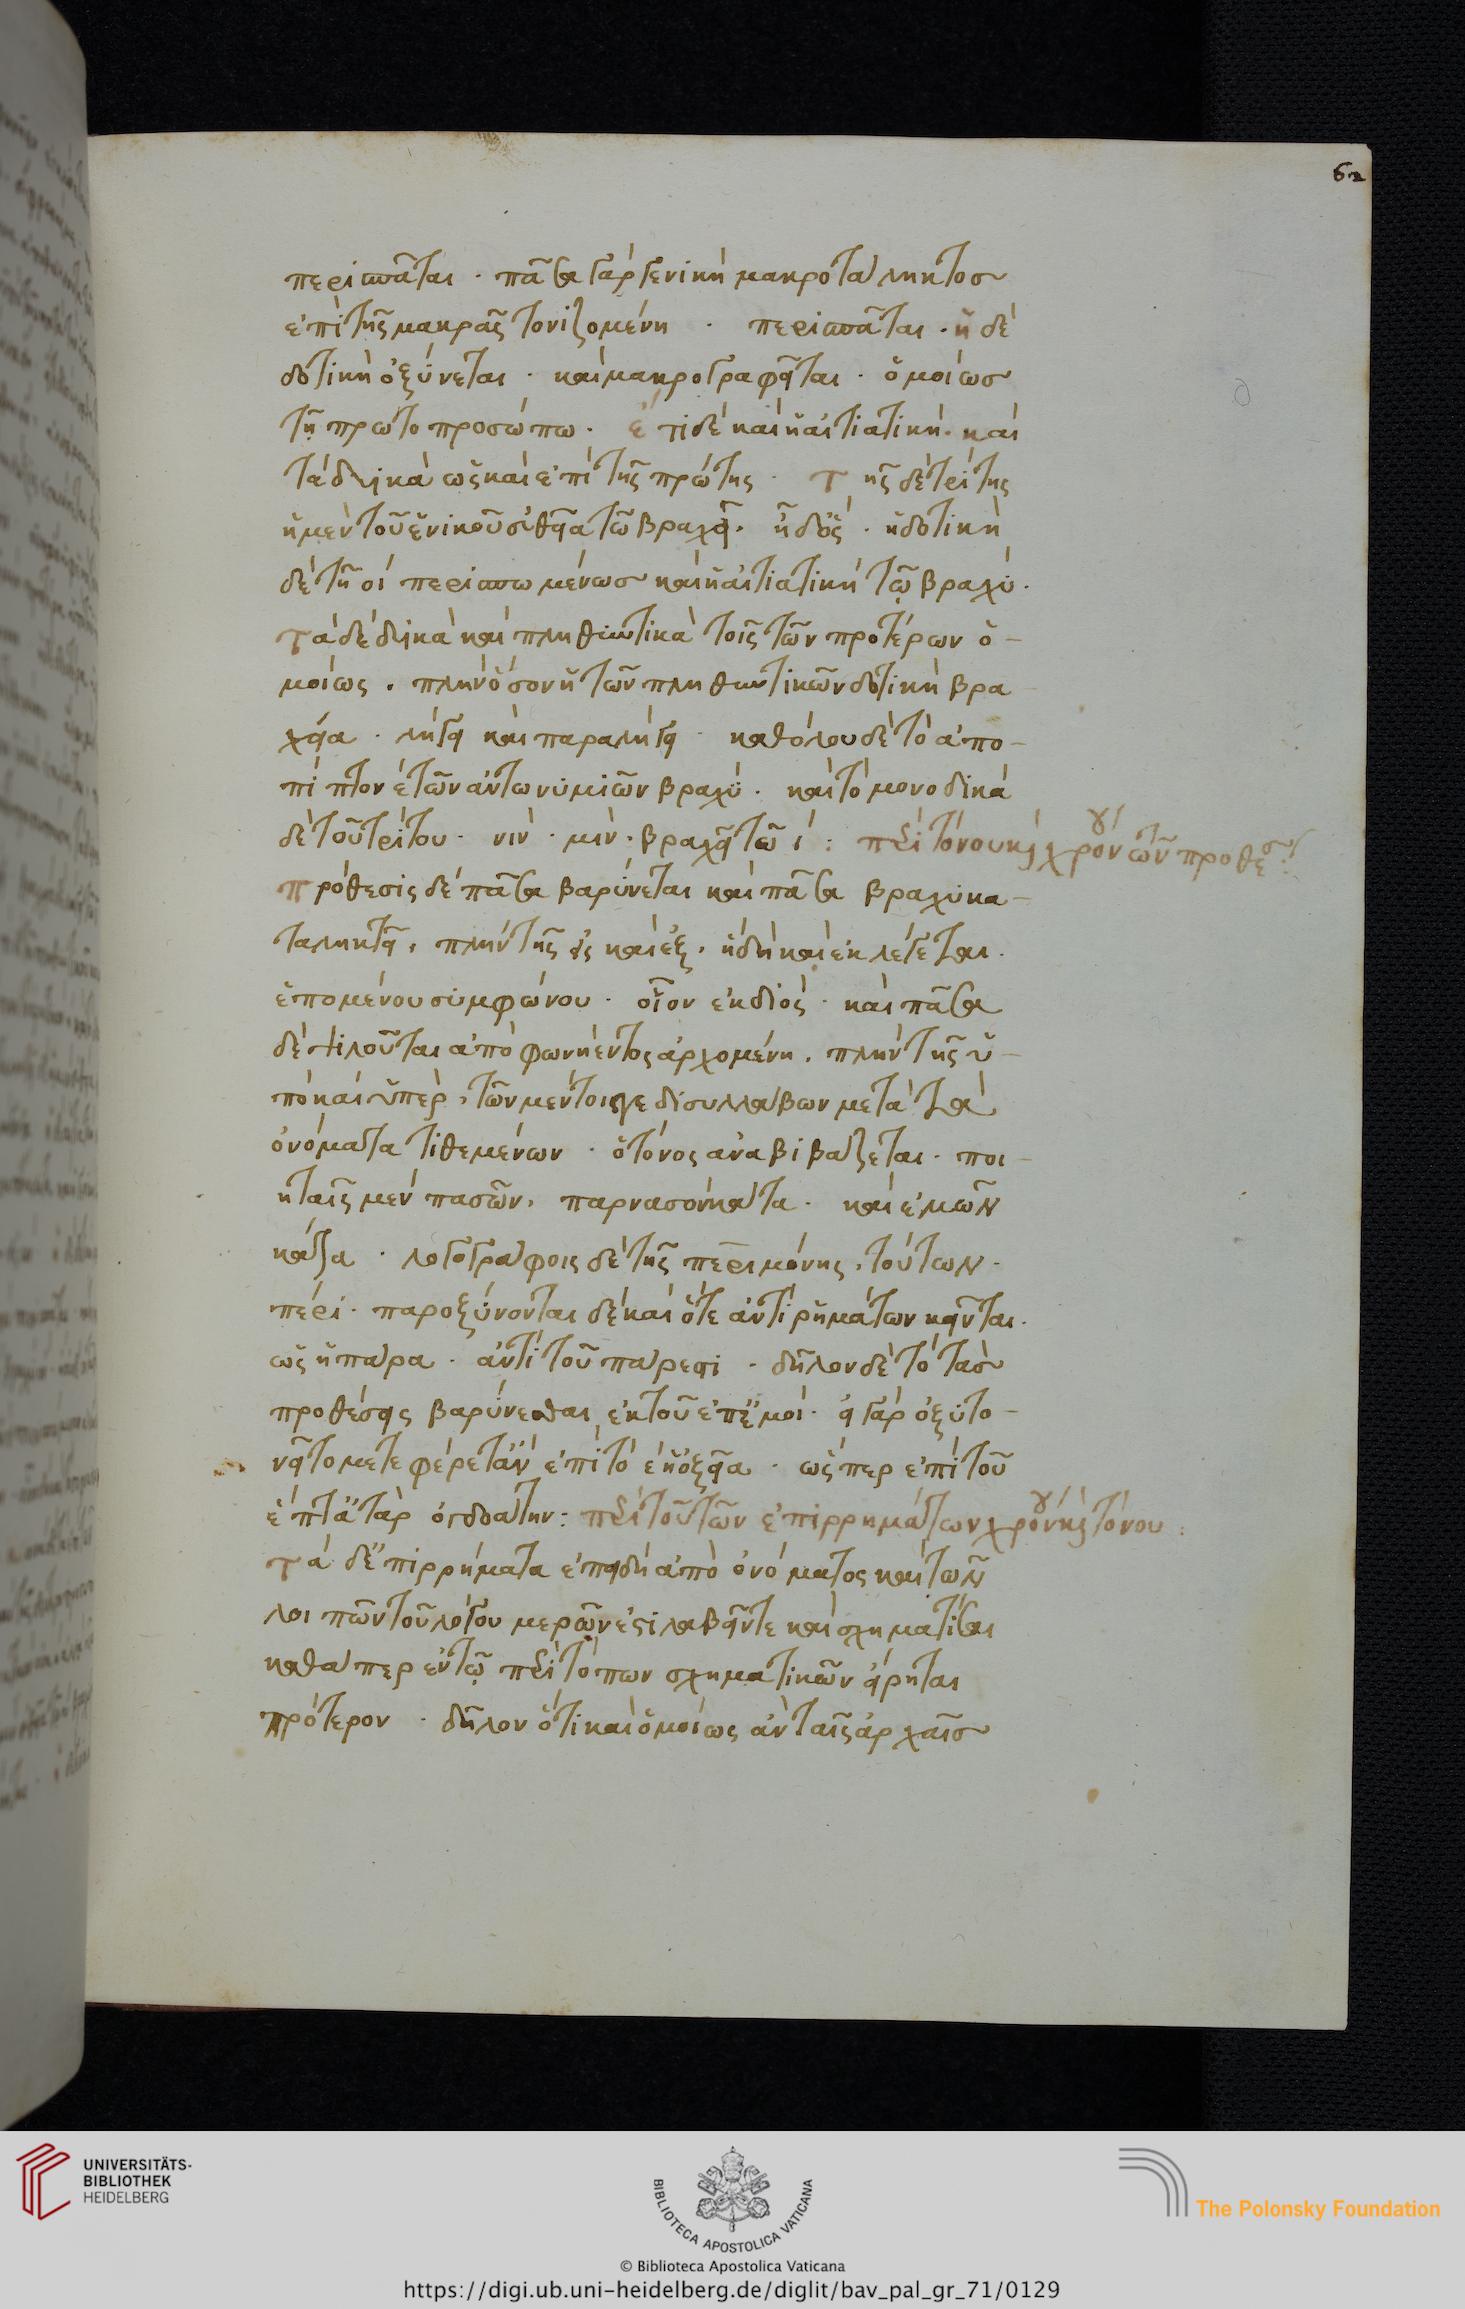 62
περισπᾶται · πᾶσα γὰρ γενικὴ μακροκατάληκτοσ
ἐπὶ τῆς μακρᾶς τονιζομένη · περισπᾶται · ἡ δὲ
δοτικὴ ὀξύνεται · καὶ μακρογραφεῖται · ὁμοίωσ
τῆ πρώτο προσώπω · ἔτι δὲ καὶ ἡ αἰτιατική · καὶ
τὰ δυϊκὰ ὡς καὶ ἐπὶ τῆς πρώτης · τῆς δὲ τρίτης
ἡ μὲν τοῦ ἑνικοῦ εὐθεῖα τῶ βραχεῖ · ἡ δὸς · ἡ δοτικὴ
δὲ τῆ οἱ περισπωμένωσ καὶ ἡ αἰτιατικὴ τῷ βραχύ ·
τὰ δὲ δυϊκὰ καὶ πληθυντικὰ τοῖς τῶν προτέρων ὁ-
μοίως · πλὴν ὅσον ἡ τῶν πληθυντικῶν δοτικὴ βρα-
χέα · λήγει καὶ παραλήγει · καθόλου δὲ τὸ ἀπο-
πίπτον ἐ τῶν ἀντωνυμιῶν βραχύ · καὶ τὸ μονοδικὰ
δὲ τοῦ τρίτου · νιν · μιν · βραχεῖ τῶ ι : περὶ τόνου καὶ χρόν τῶν προθέσ:
πρόθεσις δὲ πᾶσα βαρύνεται καὶ πᾶσα βραχυκα-
ταληκτεῖ, πλὴν τῆς εἰς καὶ ἐξ, ἤδη καὶ ἐκ λέγεται ·
ἑπομένου συμφώνου · οἷον ἐκ διός · καὶ πᾶσα
δὲ ψιλοῦται ἀπὸ φωνήεντος ἀρχομένη, πλὴν τῆς ὑ-
πὸ καὶ ὑπέρ, τῶν μέντοιγε δισυλλάβων μετὰ τὰ
ὀνόματα τιθεμένων · ὁ τόνος ἀναβιβάζεται · ποι-
ηταῖς μὲν πασῶν, παρνασὸν κάτα · καὶ ἐμῶν
κάτα · λογογράφοις δὲ τῆς περὶ μόνης, τούτων ·
πέρι · παροξύνονται δὲ καὶ ὅτε ἀντὶ ῥημάτων κεῖνται ·
ὡς ἡ πάρα · ἀντὶ τοῦ πάρεστι · δῆλον δὲ τὸ τὰσ
προθέσεις βαρύνεσθαι ἐκ τοῦ ἐπ ἐμοί · εἰ γὰρ ὀξύτο-
νεῖτο μετεφέρετ ἂν ἐπὶ τὸ ἐ ἡ ὀξεῖα · ὥσπερ ἐπὶ τοῦ
ἕπτ ἄταρ ὀγδοάτην : περὶ τοῦ τῶν ἐπιρρημάτων χρόν καὶ τόνου :
τὰ δ ἐπιρρήματα ἐπειδὴ ἀπὸ ὀνόματος καὶ τῶν
λοιπῶν τοῦ λόγου μερῶν ἐστὶ λαβεῖν τε καὶ σχηματίσαι
καθάπερ ἐν τῷ περὶ τόπων σχηματικῶν εἴρηται
πρότερον · δῆλον ὅτι καὶ ὁμοίως ἀν ταῖς ἀρχαῖσ
UNIVERSITÄTS-
BIBLIOTHEK
HEIDELBERG
BIBLIOTECA APOSTOLICA VATICANA
The Polonsky Foundation
© Biblioteca Apostolica Vaticana
https://digi.ub.uni-heidelberg.de/diglit/bav_pal_gr_71/0129